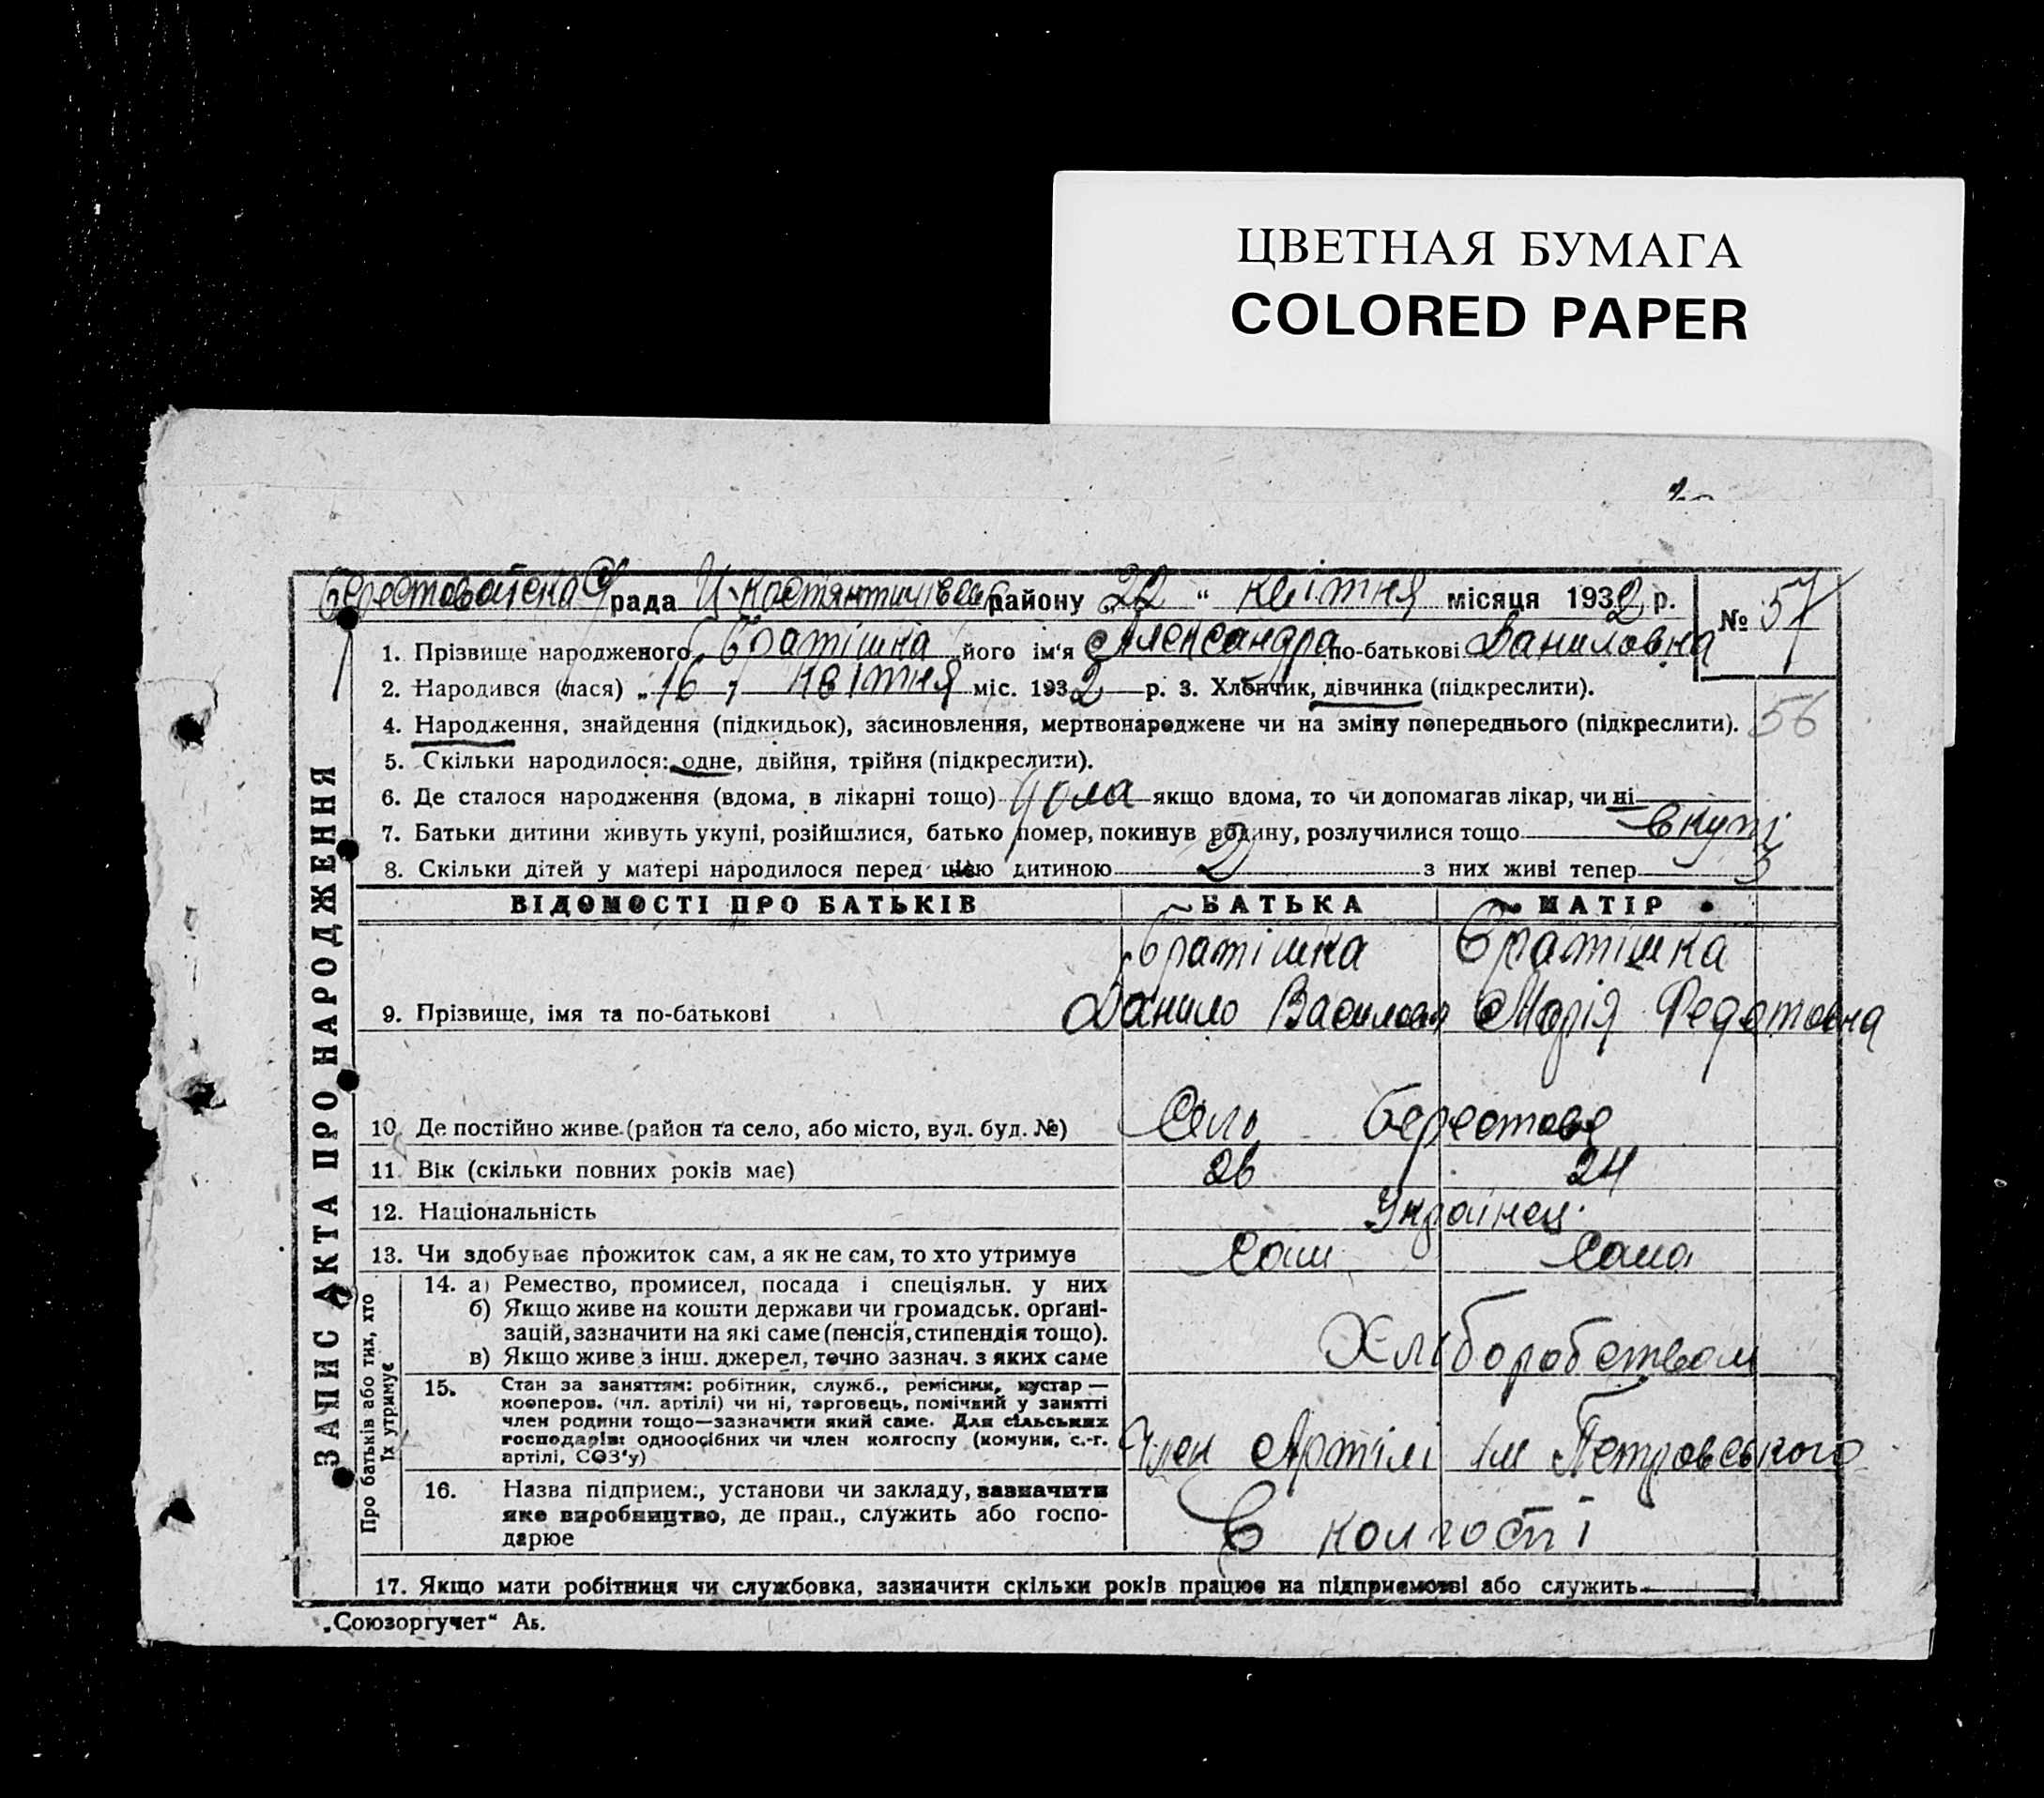 ЦВЕТНАЯ БУМАГА
COLORED PAPER
рада району „22“ квітня місяця 1932 р. № 57
1. Прізвище народженого Братішка його ім'я Александра по-батькові Даниловна
2. Народився (лася) „16„ квітня міс. 1932 р. 3. Хлопчик, дівчинка (підкреслити).
56
4. Народження, знайдення (підкидьок), засиновлення, мертвонароджене чи на зміну попереднього (підкреслити).
5. Скільки народилося: одне, двійня, трійня (підкреслити).
6. Де сталося народження (вдома, в лікарні тощо) дома якщо вдома, то чи допомагав лікар, чи ні
7. Батьки дитини живуть укупі, розійшлися, батько помер, покинув родину, розлучилися тощо вкупі
8. Скільки дітей у матері народилося перед цією дитиною 2 з них живі тепер 3
ВІДОМОСТІ ПРО БАТЬКІВ БАТЬКА МАТІР
Братішка Братішка
9. Прізвище, імя та по-батькові Данило Марія Федотовна
10. Де постійно живе (район та село, або місто, вул. буд. №) Село Берестове
11. Вік (скільки повних років має) 26 24
12. Національність Українец.
13. Чи здобуває прожиток сам, а як не сам, то хто утримує Сам Сама
14. а) Ремество, промисел, посада і спеціяльн. у них
б) Якщо живе на кошти держави чи громадськ. орґані-
зацій, зазначити на які саме (пенсія, стипендія тощо).
в) Якщо живе з інш. джерел, точно зазнач. з яких саме Хліборобством
15. Стан за заняттям: робітник, служб., ремісник, кустар —
кооперов. (чл. артілі) чи ні, торговець, помічний у занятті
член родини тощо—зазначити який саме. Для сільських
господарів: одноосібних чи член колгоспу (комуни, с.-г.
артілі, СОЗ'у) Член Артілі ім Петровського
16. Назва підприєм., установи чи закладу, зазначити
яке виробництво, де прац., служить або госпо-
дарює В колгоспі
17. Якщо мати робітниця чи службовка, зазначити скільки років працює на підприємстві або служить
„Союзоргучет“ Аб.
ЗАПИС АКТА ПРО НАРОДЖЕННЯ
Про батьків або тих, хто
їх утримує